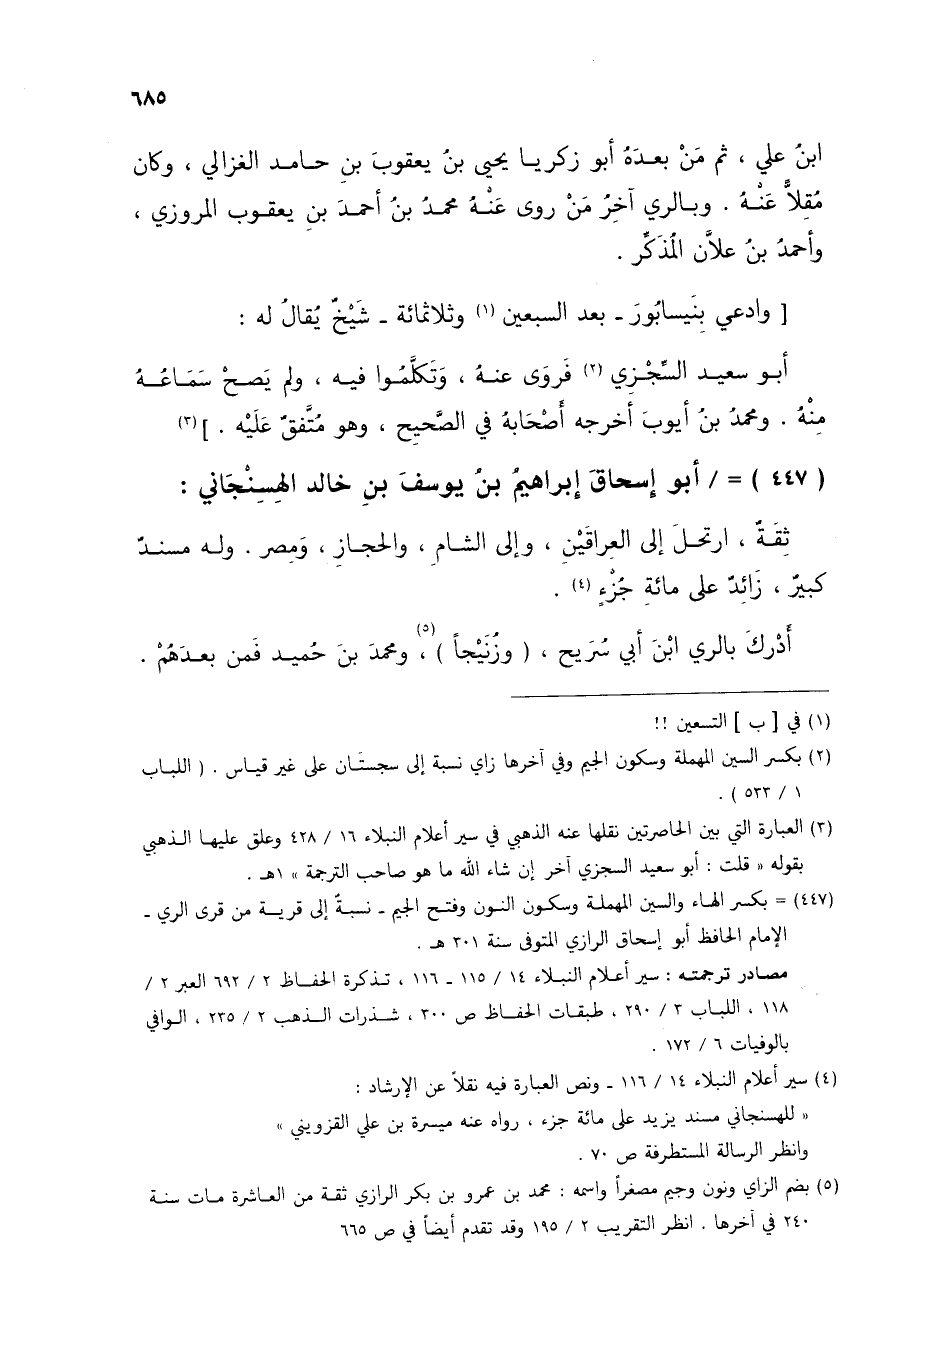 ٦٨٥
ابنُ علي ، ثم مَنْ بعدَهُ أبو زكريـا يحيى بنُ يعقوبَ بنِ حامـد الغزالي ، وكان
مُقلاًّ عَنْهُ . وبـالري آخرُ مَنْ روى عَنْـهُ محمدُ بنُ أحمدَ بنِ يعقـوب المروزي ،
وأحمدُ بنُ علاَّن المُذَكِّر .
[ وادعي بِنَيسابُورَ ـ بعد السبعين (١) وثلاثمائة ـ شَيْخٌ يُقالُ له :
أبـو سعيـد السِّجْزي (٢) فَروَى عنـهُ ، وَتَكلَّمُـوا فيـه ، ولم يَصـحْ سَمَـاعُـهُ
مِنْهُ . ومحمدُ بنُ أيوبَ أخرجه أصْحَابهُ في الصَّحيح ، وهو مُتَّفقٌ عَلَيْه . ] (٣)
( ٤٤٧ ) = / أبو إسحاقَ إبراهيمُ بنُ يوسفَ بنِ خالد الهِسِنْجَاني :
ثِقَـةٌ ، ارتحـلَ إلى العراقَيْنِ ، وإلى الشـام ، والحجـازِ ، وَمِصر . ولـه مسنـدٌ
كبيرٌ ، زَائِدٌ على مائةِ جُزْءٍ (٤) .
أَدْركَ بالري ابْنَ أبي سُرَيج ، ( وزُنَيْجاً )(٥)، ومحمدَ بنَ حُميـد فَمن بعـدَهُمْ .
(١) في [ ب ] التسعين !!
(٢) بكسر السين المهملة وسكون الجيم وفي آخرها زاي نسبة إلى سجستان على غير قياس . ( اللباب
١ / ٥٣٣ ) .
(٣) العبارة التي بين الحاصرتين نقلها عنه الذهبي في سير أعلام النبلاء ١٦ / ٤٢٨ وعلق عليهـا الـذهبي
بقوله « قلت : أبو سعيد السجزي آخر إن شاء الله ما هو صاحب الترجمة » ١هـ .
(٤٤٧) = بكسر الهاء والسين المهملة وسكون النون وفتح الجيم ـ نسبةٌ إلى قرية من قرى الري ـ
الإمام الحافظ أبو إسحاق الرازي المتوفى سنة ٣٠١ هـ .
مصـادر ترجمتـه : سير أعـلام النبـلاء ١٤ / ١١٥ ـ ١١٦ ، تـذكرة الحفـاظ ٢ / ٦٩٢ العبر ٢ /
١١٨ ، اللبـاب ٣ / ٢٩٠ ، طبقـات الحفـاظ ص ٣٠٠ ، شـذرات الـذهب ٢ / ٢٣٥ ، الـوافي
بالوفيات ٦ / ١٧٢ .
(٤) سير أعلام النبلاء ١٤ / ١١٦ ـ ونص العبارة فيه نقلاً عن الإرشاد :
« للهسنجاني مسند يزيد على مائة جزء ، رواه عنه ميسرة بن علي القزويني »
وانظر الرسالة المستطرفة ص ٧٠ .
(٥) بضم الزاي ونون وجيم مصغراً واسمه : محمد بن عمرو بن بكر الرازي ثقة من العـاشرة مـات سنـة
٢٤٠ في آخرها . انظر التقريب ٢ / ١٩٥ وقد تقدم أيضاً في ص ٦٦٥